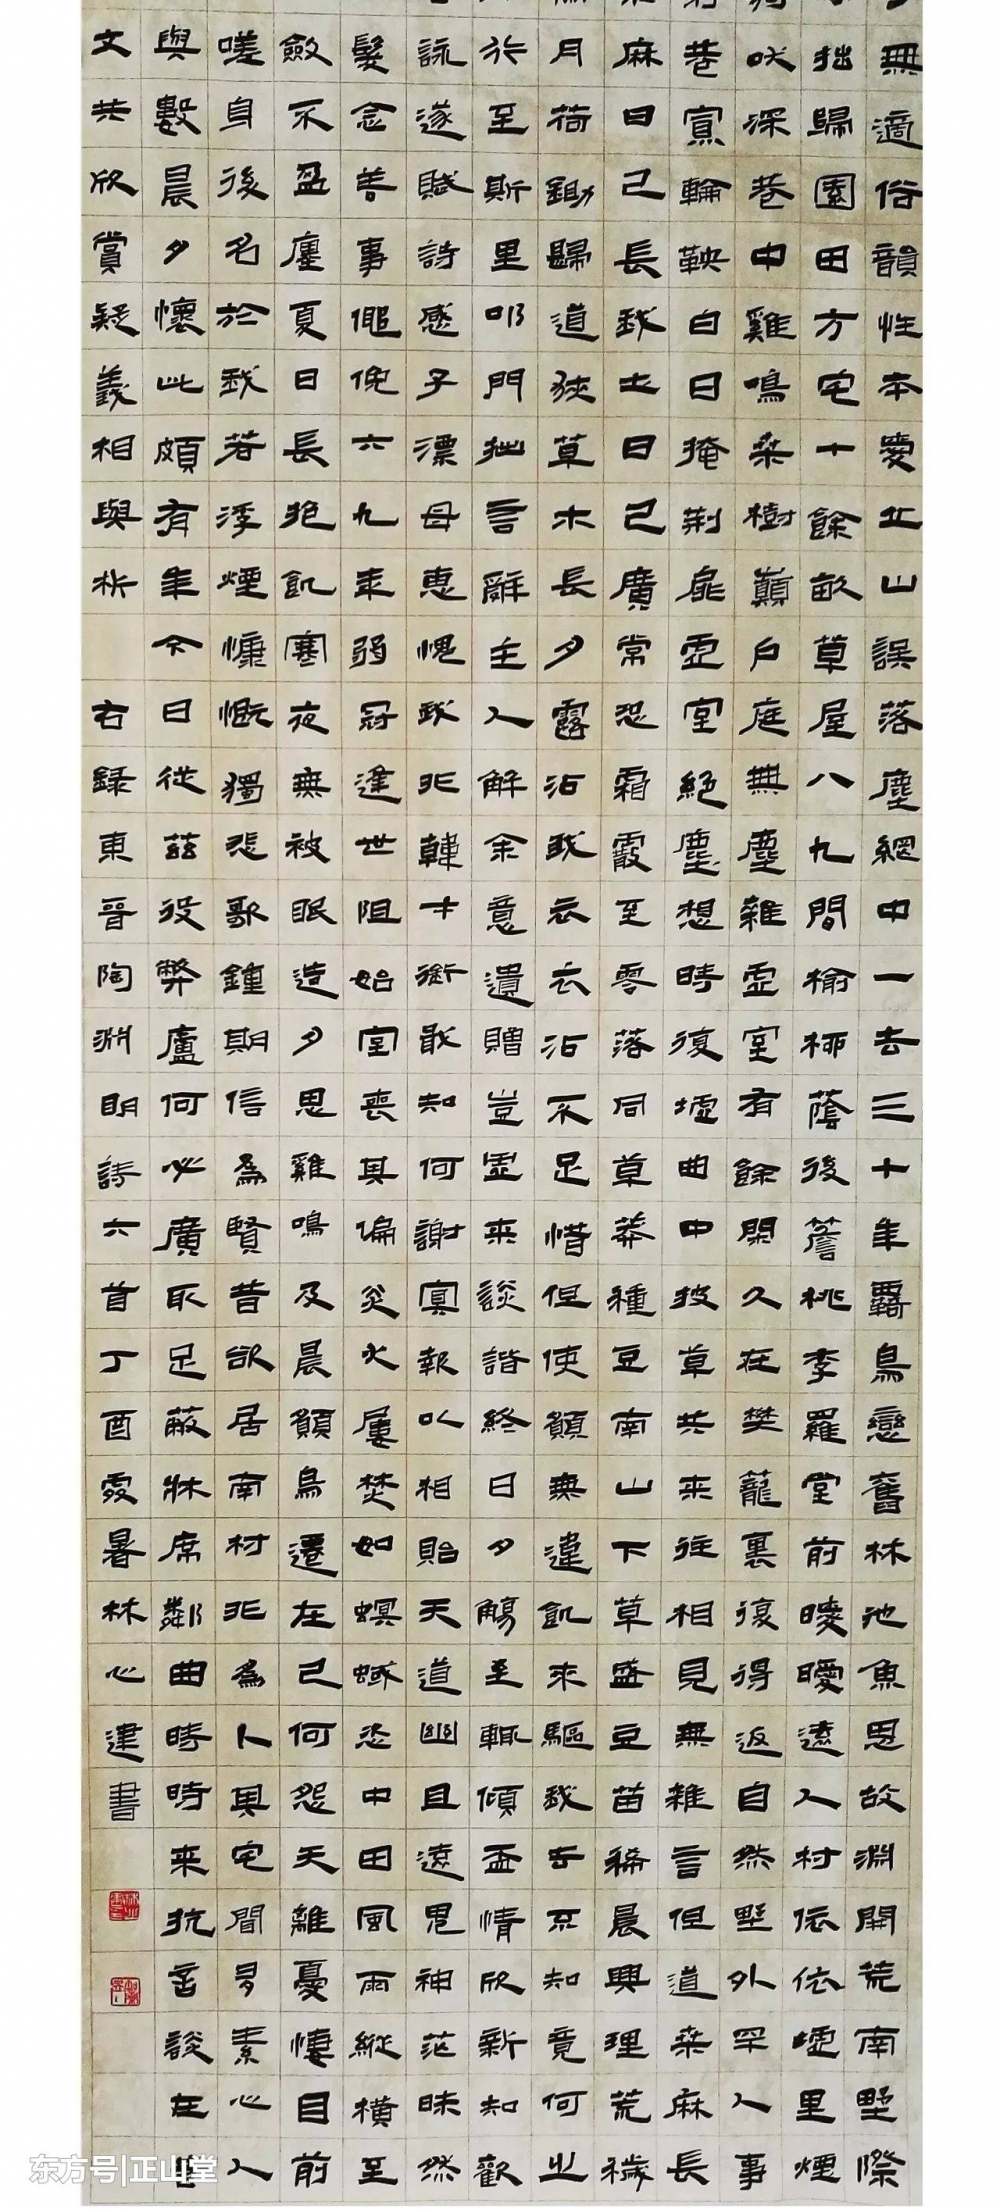 無適俗韻性本愛丘山誤落塵網中一去三十年羈鳥戀舊林池魚思故淵開荒南墅際
拙歸園田方宅十餘畝草屋八九間榆柳蔭後簷桃李羅堂前曖曖遠人村依依墟里煙
吠深巷中雞鳴桑樹巔戶庭無塵雜虛室有餘閑久在樊籠裏復得返自然墅外罕人事
巷寡輪鞅白日掩荊扉虛室絕塵想時復墟曲中披草共來往相見無雜言但道桑麻長
麻日已長我土日已廣常恐霜霰至零落同草莽種豆南山下草盛豆苗稀晨興理荒穢
月荷鋤歸道狹草木長夕露沾我衣衣沾不足惜但使願無違飢來驅我去不知竟何之
行至斯里叩門拙言辭主人解余意遺贈豈虛來談諧終日夕觴至輒傾盃情欣新知歡
詠遂賦詩感子漂母惠愧我非韓才銜戢知何謝冥報以相貽天道幽且遠鬼神茫昧然
髮念善事僶俛六九年弱冠逢世阻始室喪其偏炎火屢焚如螟蜮恣中田風雨縱橫至
斂不盈廛夏日長抱飢寒夜無被眠造夕思雞鳴及晨願烏遷在己何怨天離憂悽目前
嗟身後名於我若浮煙慷慨獨悲歌鐘期信為賢昔欲居南村非為卜其宅聞多素心人
與數晨夕懷此頗有年今日從茲役弊廬何必廣取足蔽牀席鄰曲時時來抗言談在
文共欣賞疑義相與析 右錄東晉陶淵明詩六首丁酉處暑林心建書
东方号|正山堂